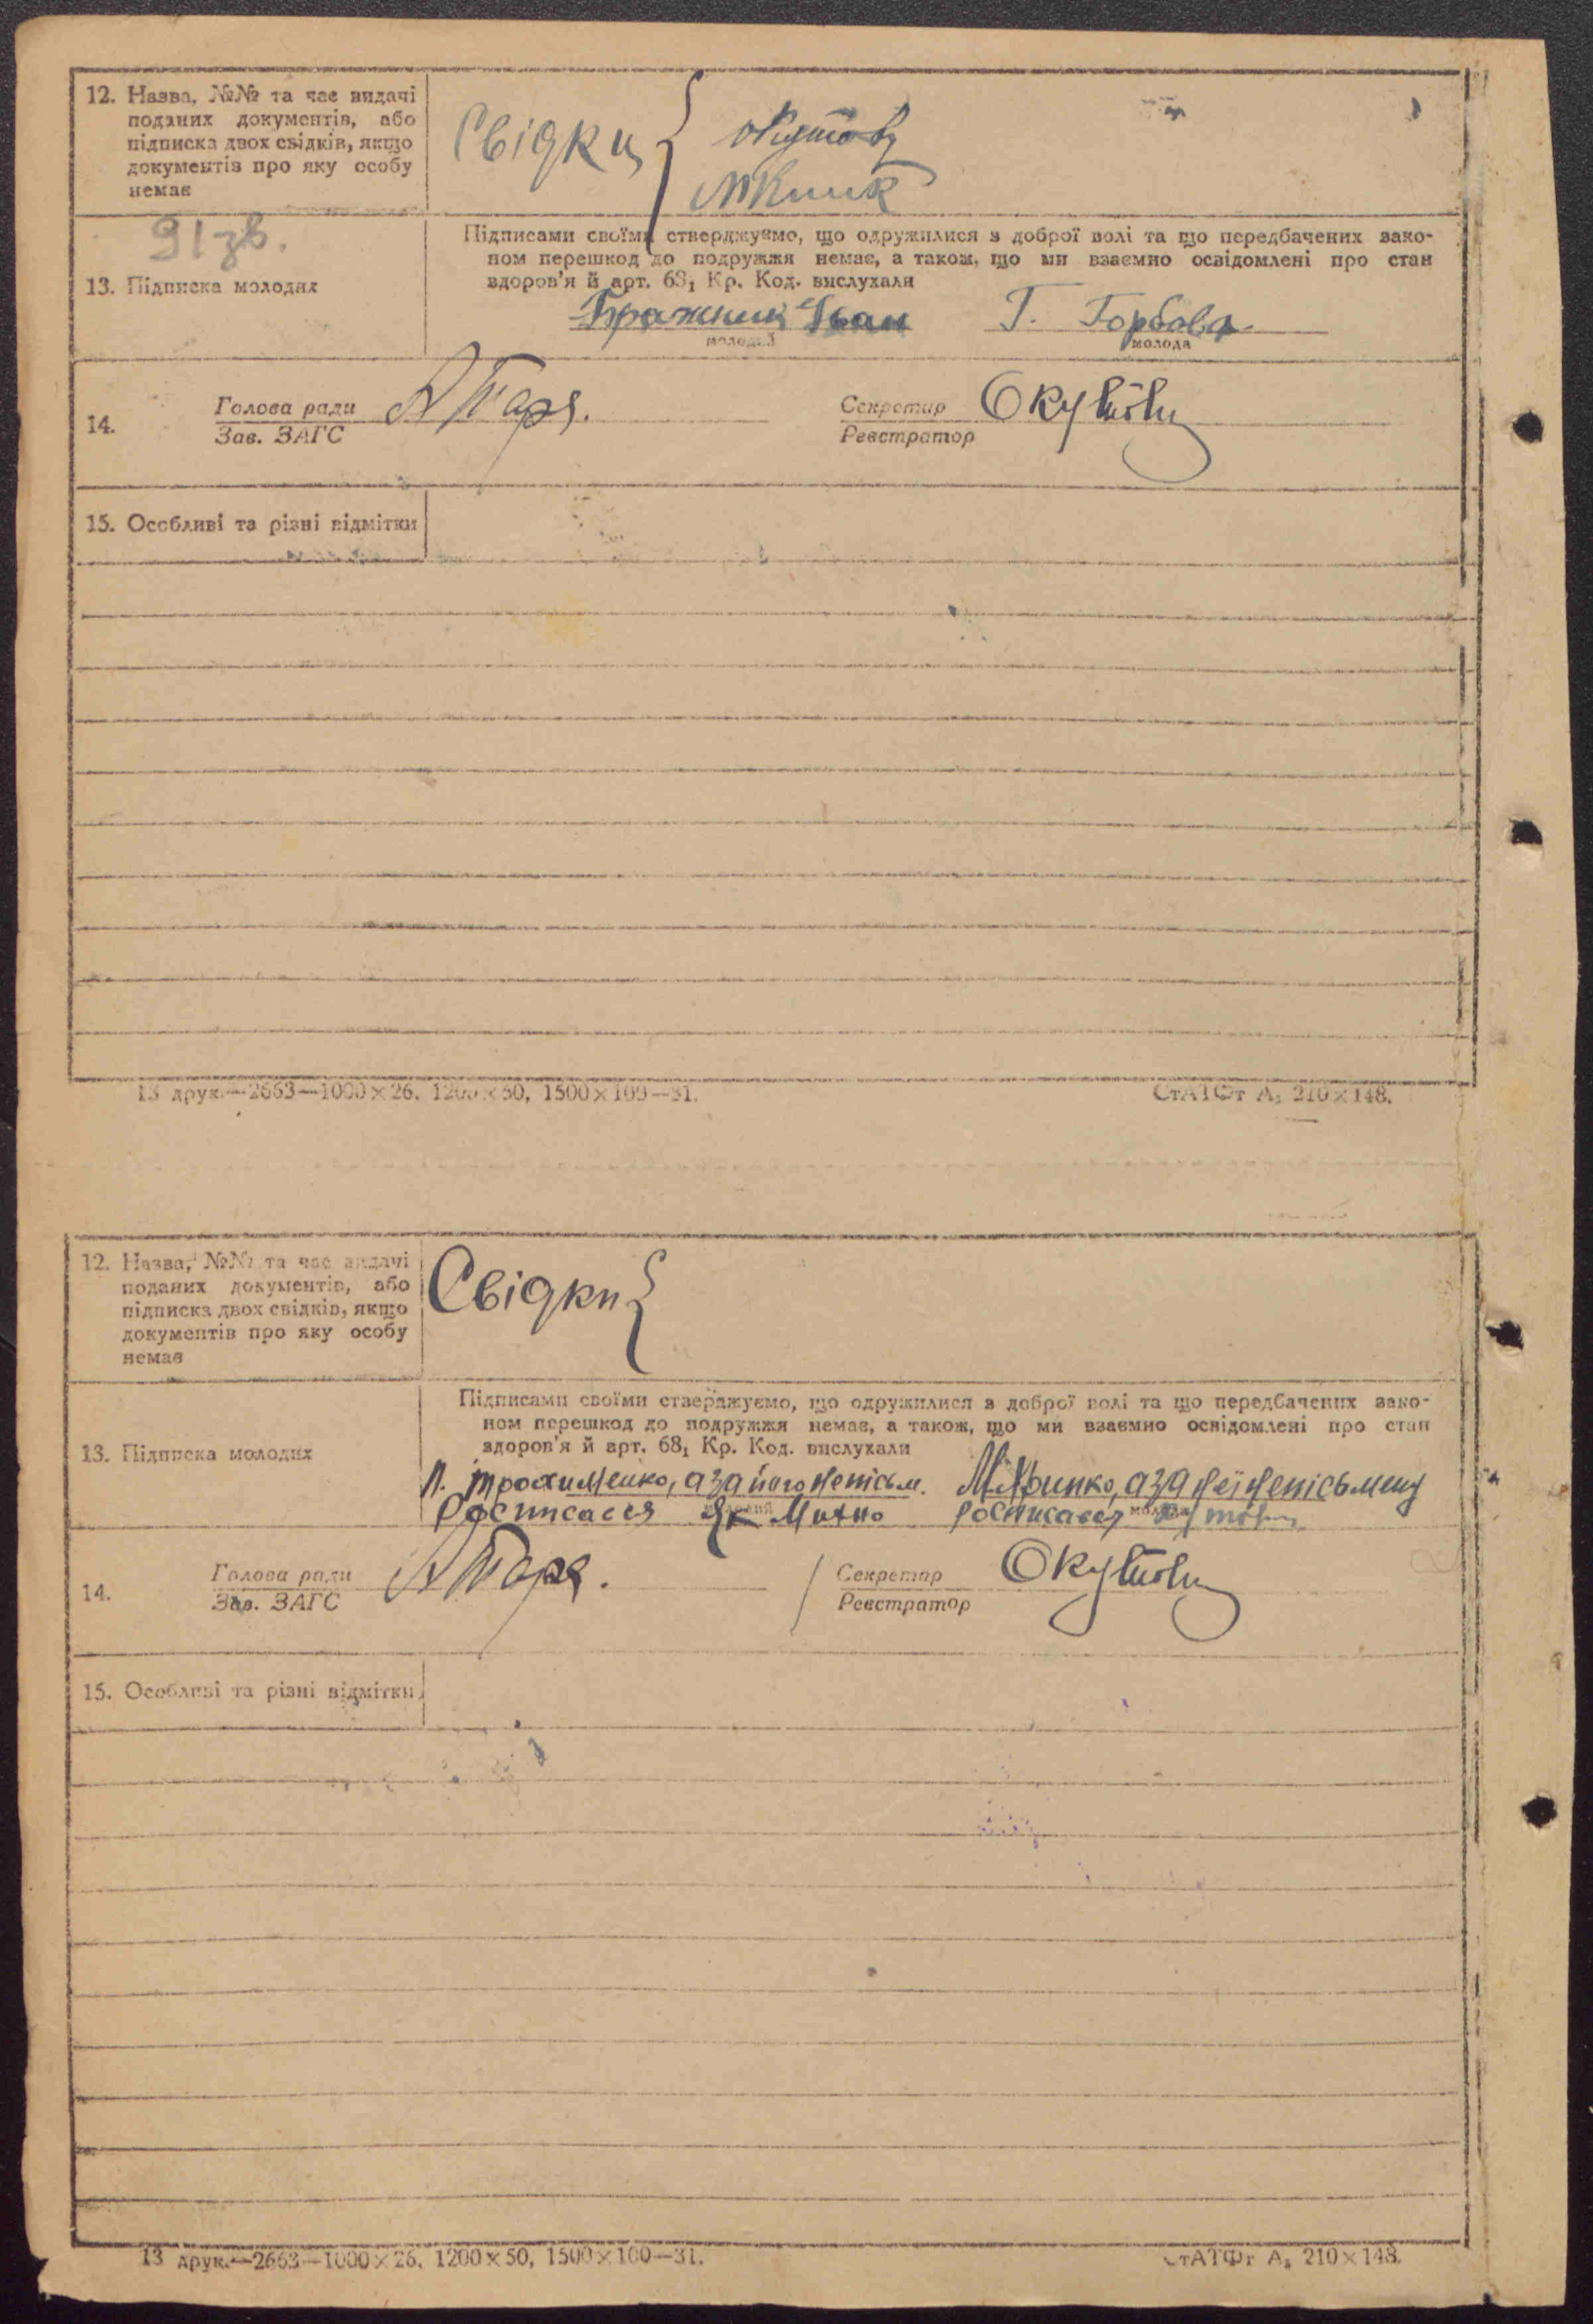 12. Назва, №№ та час видачі
поданих документів, або
підписка двох свідків, якщо
документів про яку особу
немає
Свідки
91зв.
13. Підписка молодих
Підписами своїми стверджуємо, що одружилися з доброї волі та що передбачених зако-
ном перешкод до подружжя немає, а також, що ми взаємно освідомлені про стан
здоров'я й арт. 68₁ Кр. Код. вислухали
Бражник Іван Г. Горбова
молодий молода
14.
Голова ради
Зав. ЗАГС
Секретар
Реєстратор
15. Особливі та різні відмітки
13 друк.—2663—1000×26. 1200×50, 1500×100—31.
СтАТФт А₅ 210×148.
12. Назва, №№ та час видачі
поданих документів, або
підписка двох свідків, якщо
документів про яку особу
немає
Свідки
13. Підписка молодих
Підписами своїми стверджуємо, що одружилися з доброї волі та що передбачених зако-
ном перешкод до подружжя немає, а також, що ми взаємно освідомлені про стан
здоров'я й арт. 68₁ Кр. Код. вислухали
П. Трохименко, а за його непісьм.
Росписасея
молодий
а за неї непісьмену
Росписасея
молода
14.
Голова ради
Зав. ЗАГС
Секретар
Реєстратор
15. Особливі та різні відмітки
13 друк.—2663—1000×26, 1200×50, 1500×100—31.
СтАТФт А₅ 210×148.